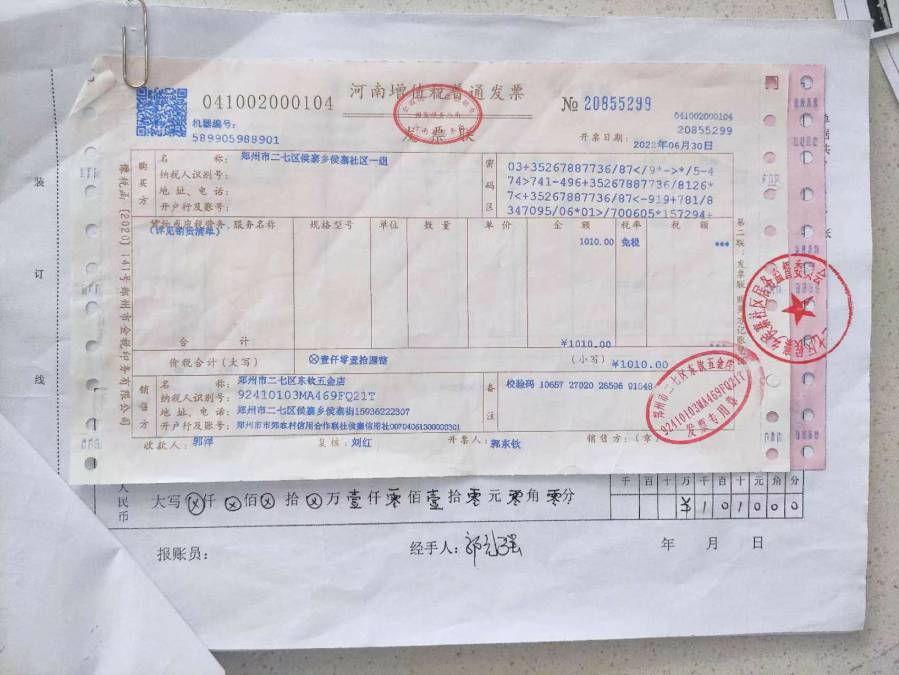 河南增值税普通发票
041002000104
№ 20855299
机器编号:
589905988901
发票联
041002000104
20855299
开票日期: 2022年06月30日
购买方
名 称: 郑州市二七区侯寨乡侯寨社区一组
纳税人识别号:
地址、电话:
开户行及账号:
密码区
03+35267887736/87</9*->*/5-4
74>741-496+35267887736/8126*
7<+35267887736/87<-919+781/8
347095/06*01>/700605*157294+
货物或应税劳务、服务名称 规格型号 单位 数量 单价 金额 税率 税额
(详见销货清单) 1010.00 免税 ***
合 计 ¥1010.00 ***
价税合计(大写) ⊗壹仟零壹拾圆整 (小写) ¥1010.00
销售方
名 称: 郑州市二七区东钦五金店
纳税人识别号: 92410103MA469FQ21T
地址、电话: 郑州市二七区侯寨乡侯寨街15936222307
开户行及账号: 郑州市市郊农村信用合作联社侯寨信用社00704061300000301
备注
校验码 10657 27020 26596 91648
收款人: 郭洋 复核: 刘红 开票人: 郭东钦 销售方:(章)
豫税函[2020]141号郑州市金税印务有限公司
第二联:发票联
郑州市二七区东钦五金店
92410103MA469FQ21T
发票专用章
装
订
线
人民币
大写 ⊗仟⊗佰 拾⊗万壹仟零佰壹拾零元零角零分
千 百 十 万 千 百 十 元 角 分
¥ 1 0 1 0 0 0
报账员: 经手人: 年 月 日